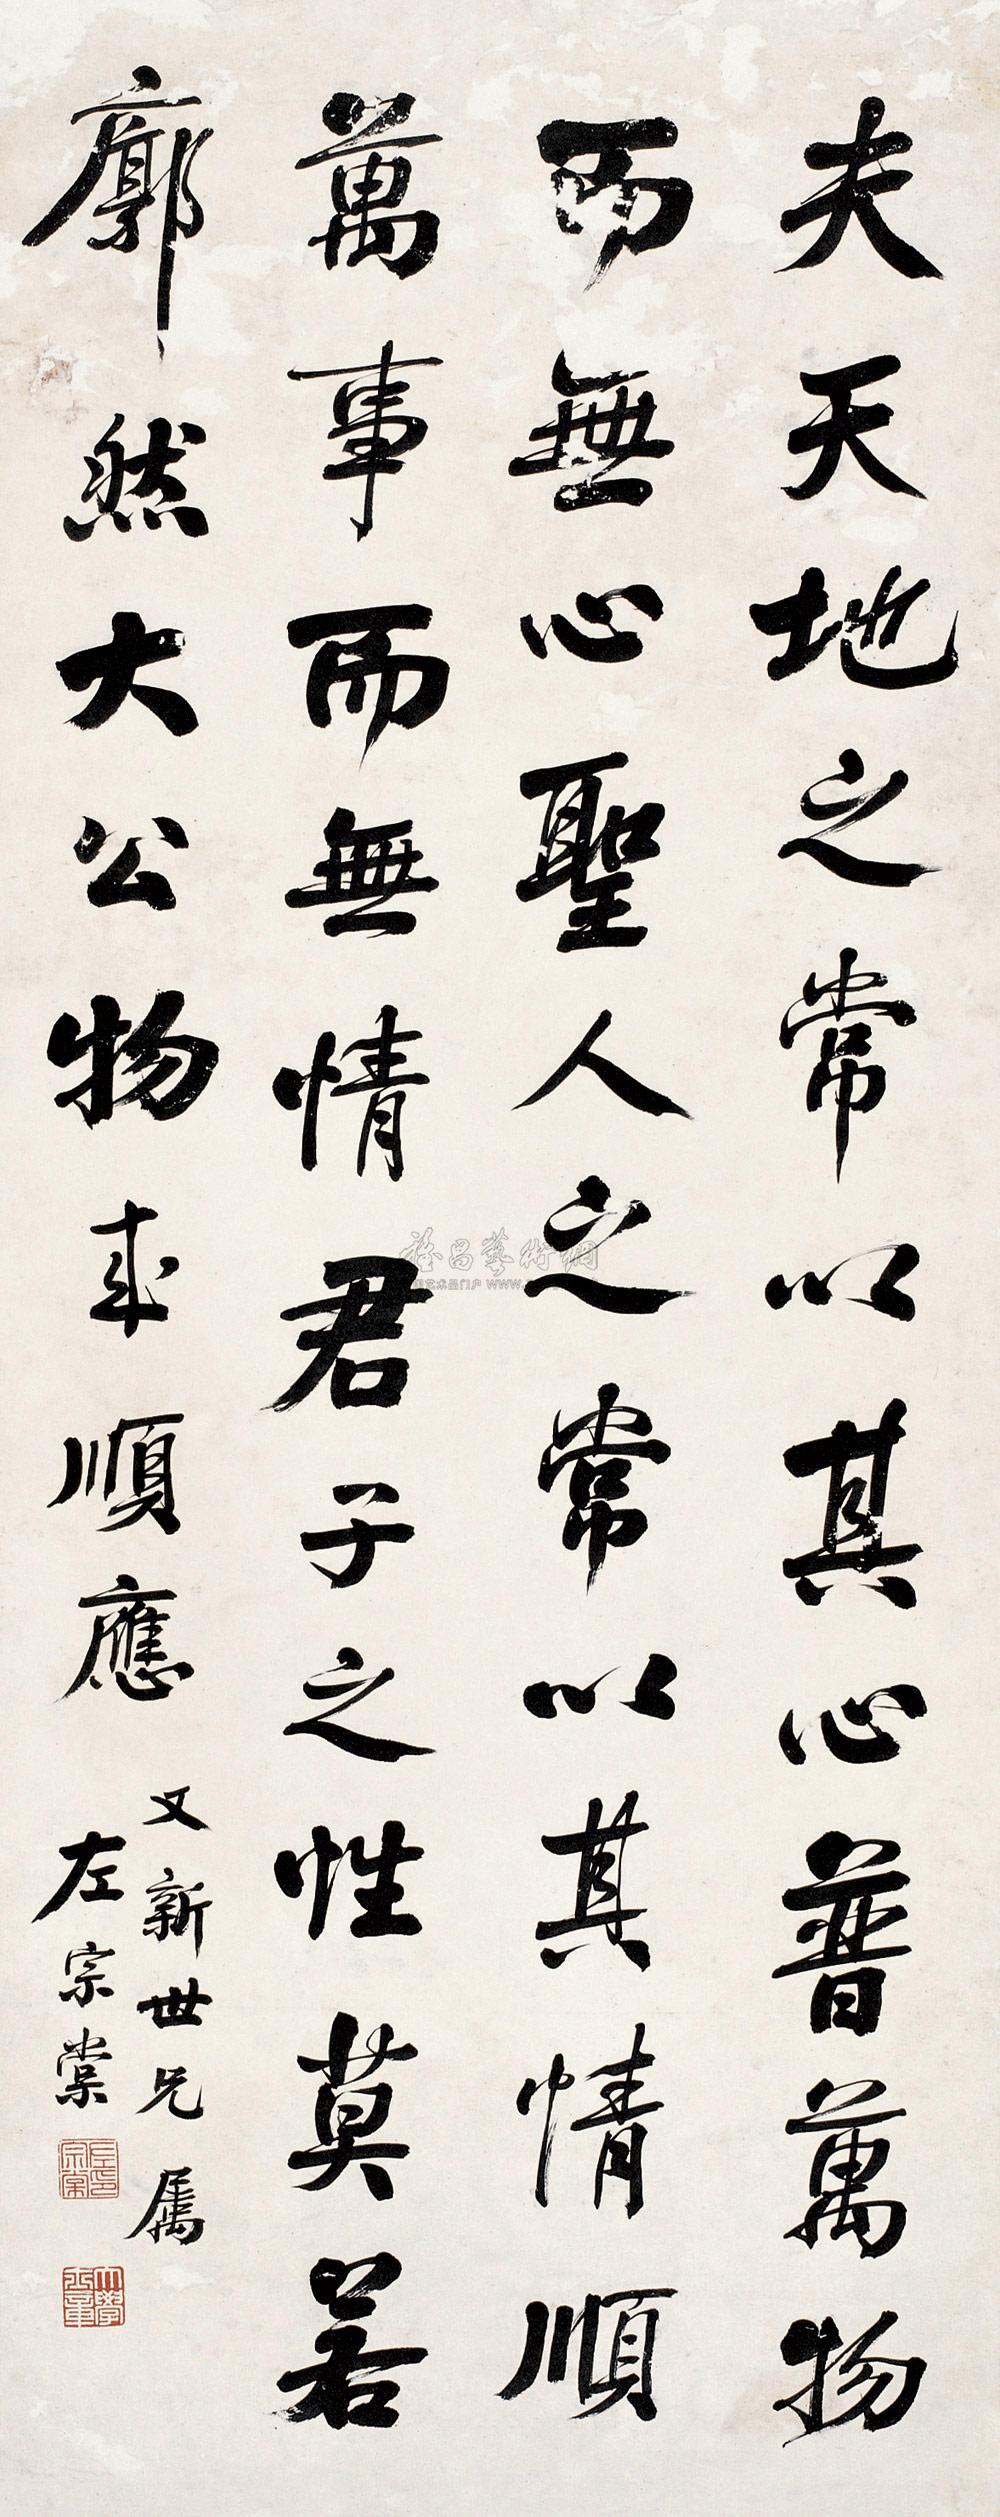 夫天地之常以其心普萬物
而無心聖人之常以其情順
萬事而無情君子之性莫若
廓然大公物来順應
又新世兄屬
左宗棠